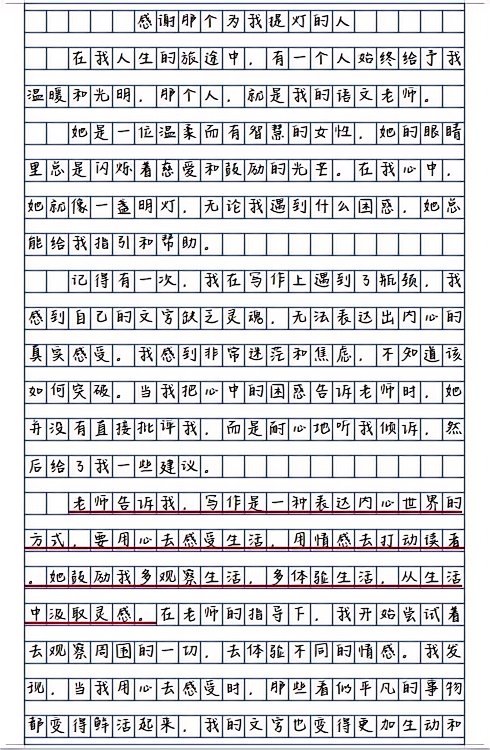 感谢那个为我提灯的人
在我人生的旅途中，有一个人始终给予我
温暖和光明，那个人，就是我的语文老师。
她是一位温柔而有智慧的女性，她的眼睛
里总是闪烁着慈爱和鼓励的光芒。在我心中，
她就像一盏明灯，无论我遇到什么困惑，她总
能给我指引和帮助。
记得有一次，我在写作上遇到了瓶颈，我
感到自己的文字缺乏灵魂，无法表达出内心的
真实感受。我感到非常迷茫和焦虑，不知道该
如何突破。当我把心中的困惑告诉老师时，她
并没有直接批评我，而是耐心地听我倾诉，然
后给了我一些建议。
老师告诉我，写作是一种表达内心世界的
方式，要用心去感受生活，用情感去打动读者
。她鼓励我多观察生活，多体验生活，从生活
中汲取灵感。在老师的指导下，我开始尝试着
去观察周围的一切，去体验不同的情感。我发
现，当我用心去感受时，那些看似平凡的事物
都变得鲜活起来，我的文字也变得更加生动和